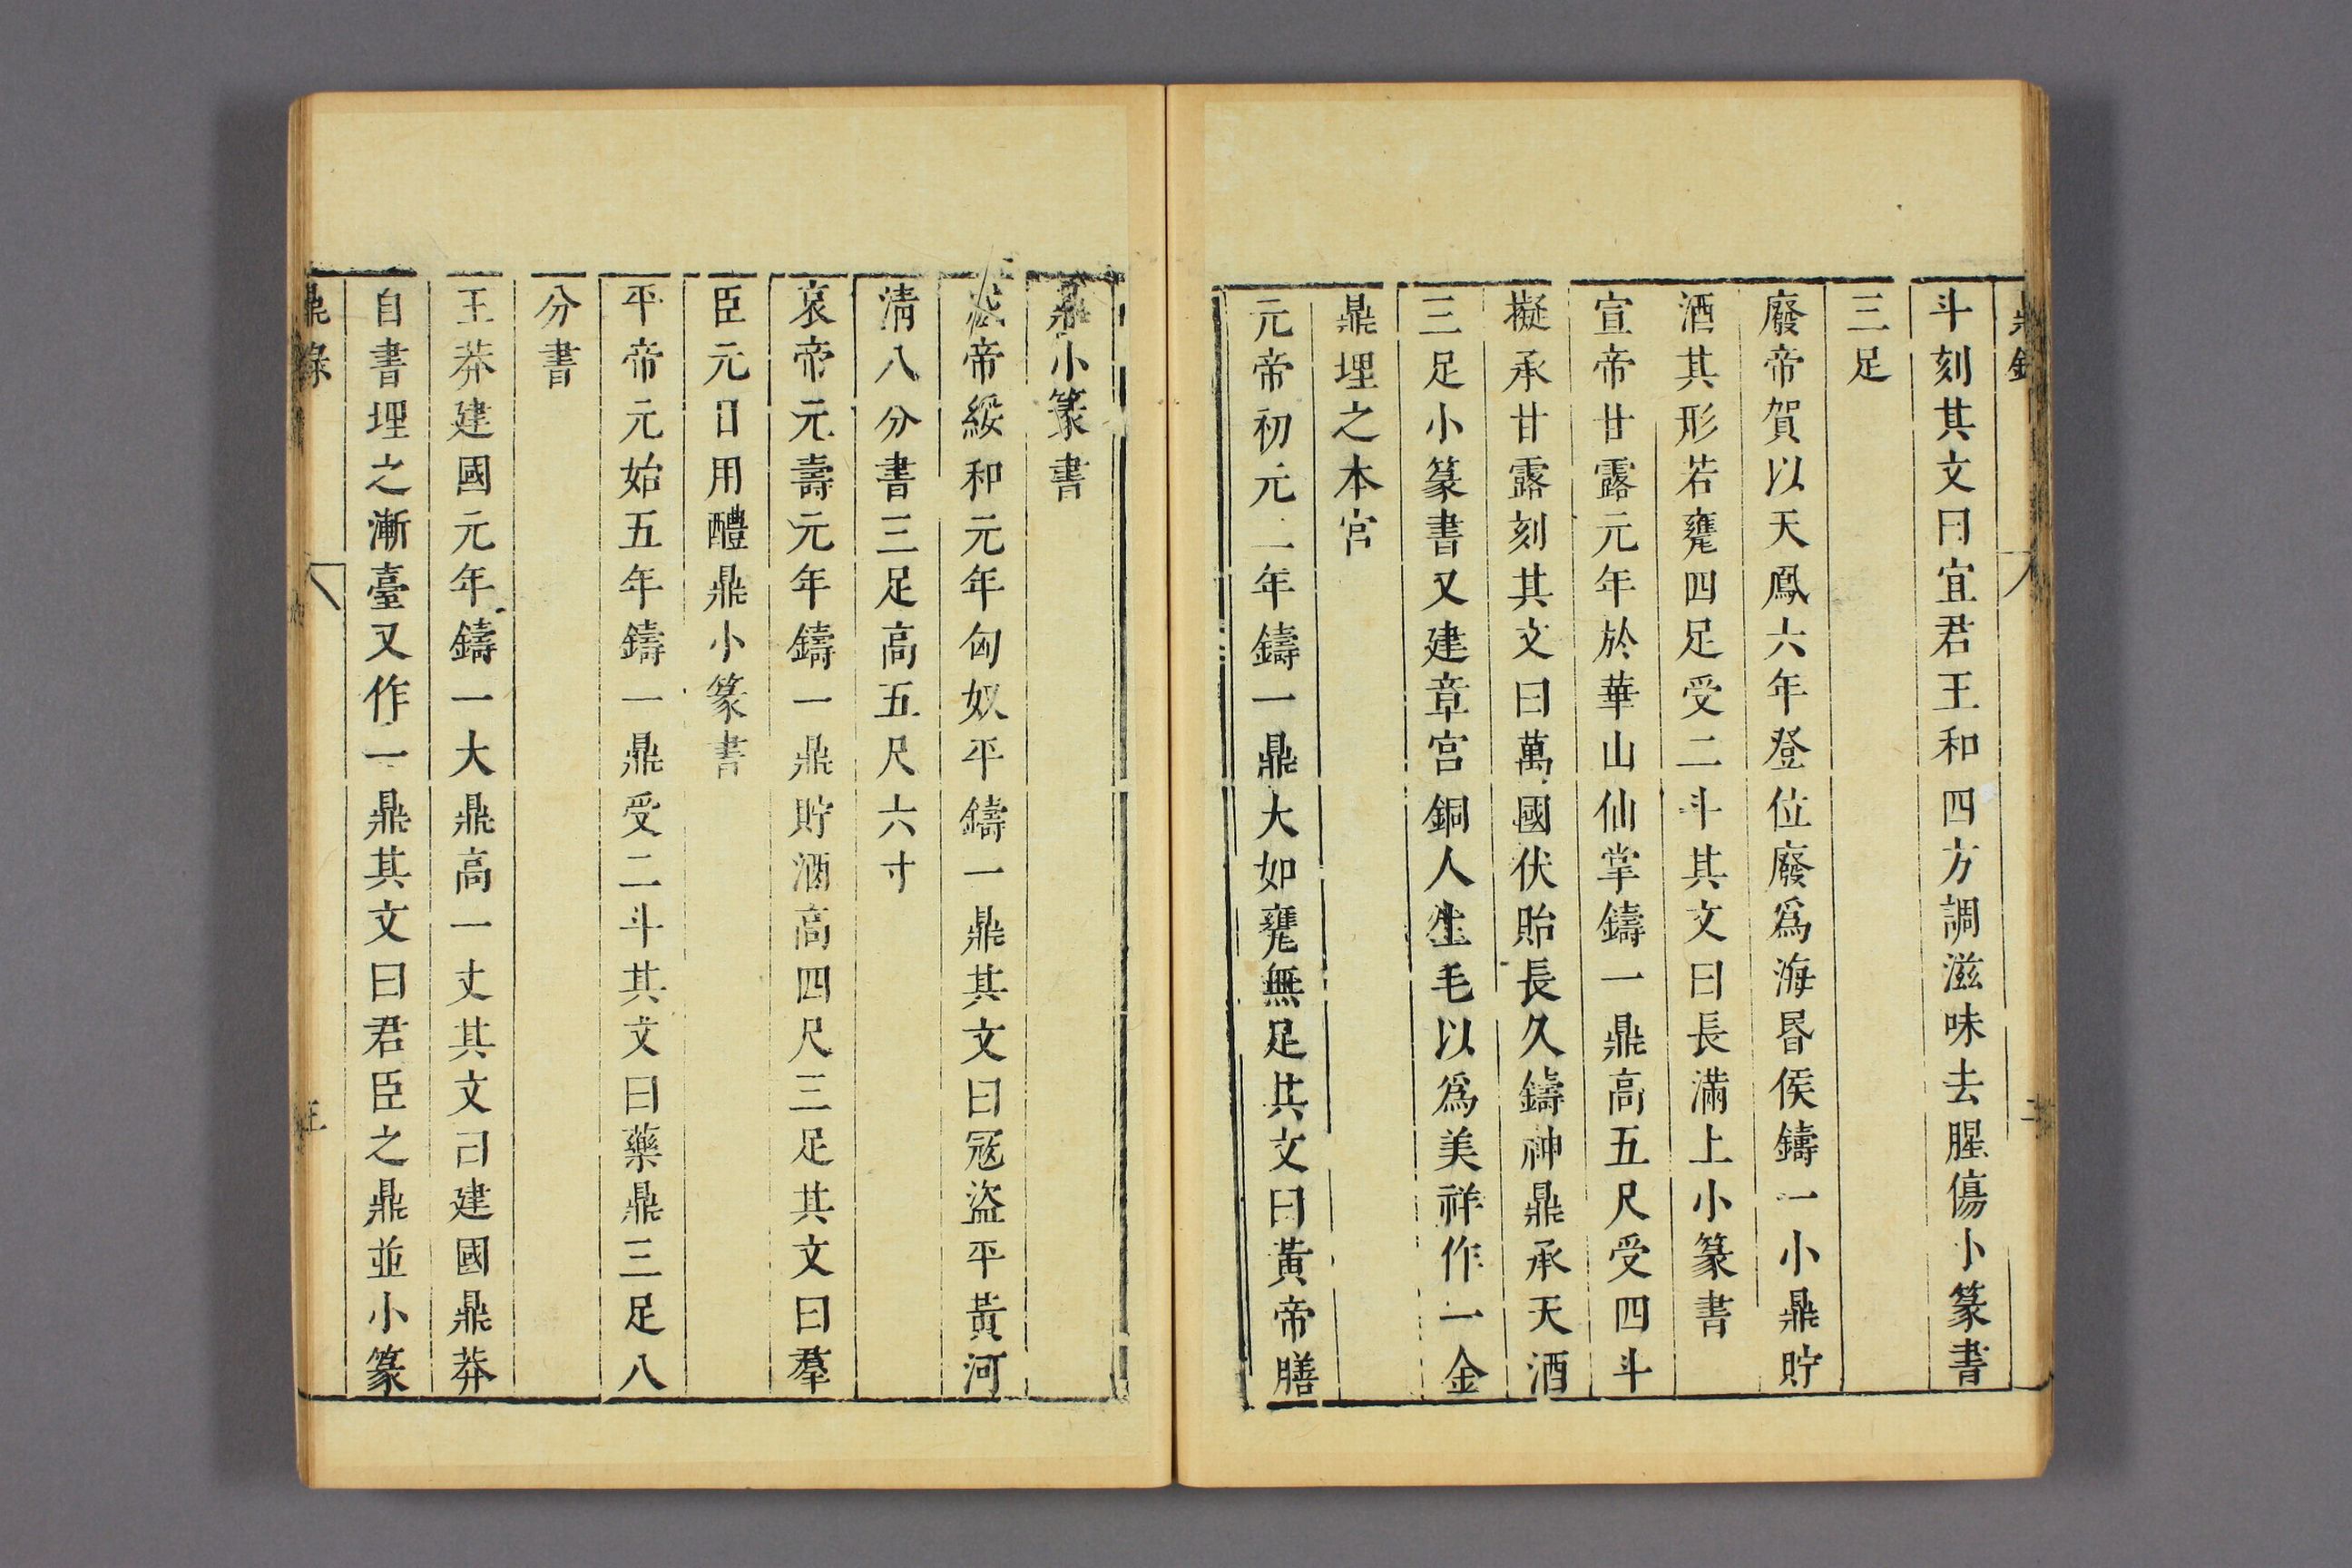 斗刻其文曰宜君王和四方調滋味去腥傷小篆書
三足
廢帝賀以天鳳六年登位廢爲海昬侯鑄一小鼎貯
酒其形若甕四足受二斗其文曰長滿上小篆書
宣帝甘露元年於華山仙掌鑄一鼎高五尺受四斗
擬承甘露刻其文曰萬國伏貽長久鑄神鼎承天酒
三足小篆書又建章宮銅人生毛以爲美祥作一金
鼎埋之本宮
元帝初元二年鑄一鼎大如甕無足其文曰黃帝膳
鼎小篆書
帝綏和元年匈奴平鑄一鼎其文曰冦盜平黃河
清八分書三足高五尺六寸
哀帝元壽元年鑄一鼎貯酒高四尺三足其文曰羣
臣元日用醴鼎小篆書
平帝元始五年鑄一鼎受二斗其文曰藥鼎三足八
分書
王莽建國元年鑄一大鼎高一丈其文曰建國鼎莽
自書埋之漸臺又作一鼎其文曰君臣之鼎並小篆
鼎錄